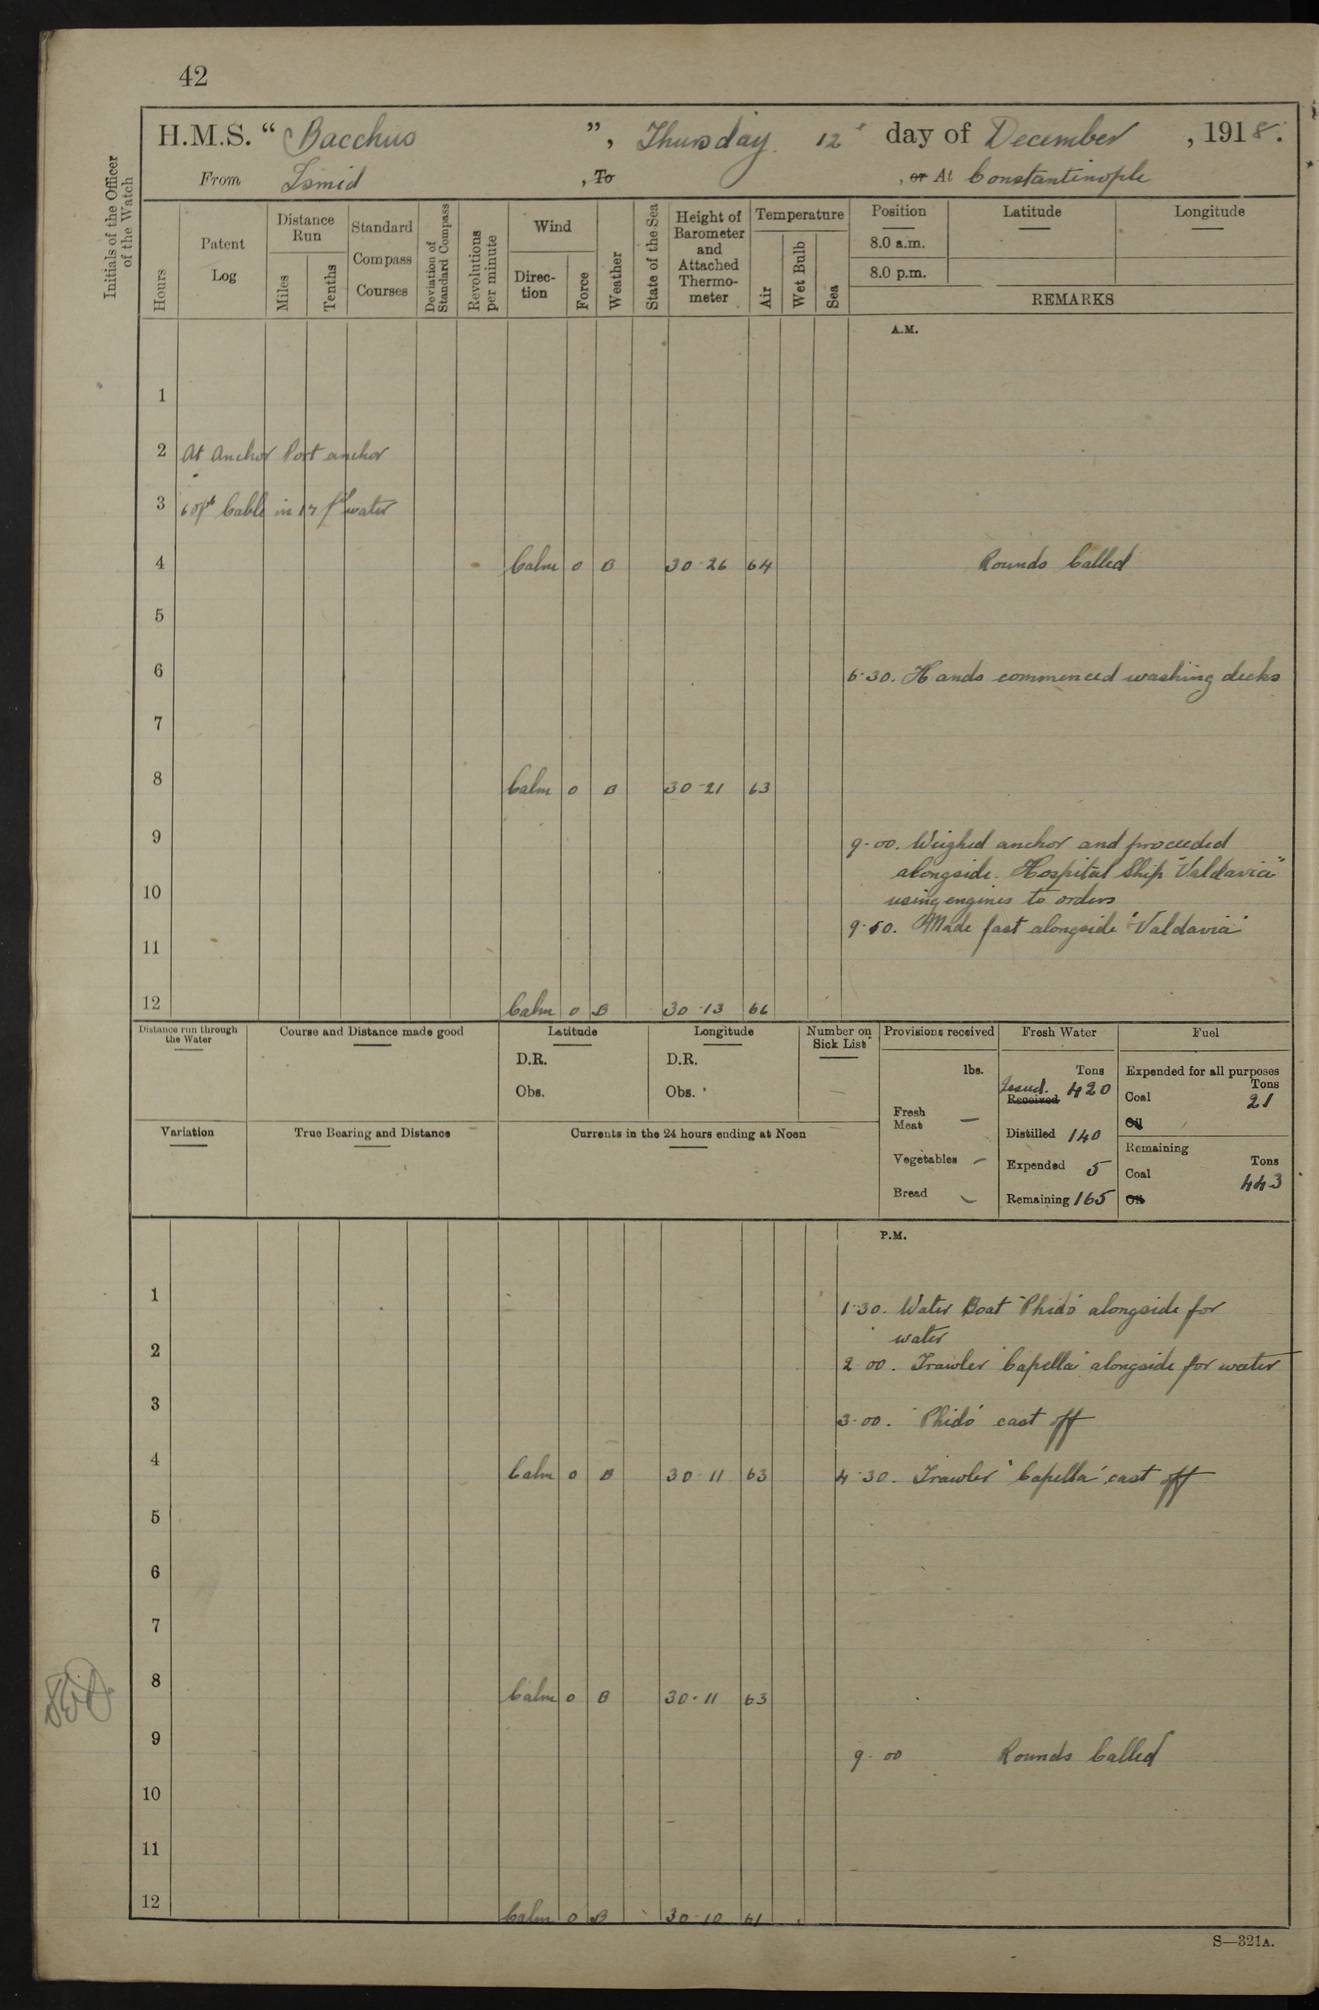 42
H.M.S. “ Bacchus ”, Thursday 12th day of December , 1918.
From Ismid , To , or At Constantinople
Initials of the Officer
of the Watch
Hours
Patent
Log
Distance
Run
Miles
Tenths
Standard
Compass
Courses
Deviation of
Standard Compass
Revolutions
per minute
Wind
Direc-
tion
Force
Weather
State of the Sea
Height of
Barometer
and
Attached
Thermo-
meter
Temperature
Air
Wet Bulb
Sea
Position Latitude Longitude
8.0 a.m.
8.0 p.m.
REMARKS
A.M.
1
2 At Anchor Port anchor
3 Cable in 17 fm water
4 Calm 0 B 30·26 64 Rounds Called
5
6 6·30. Hands commenced washing decks
7
8 Calm 0 B 30·21 63
9 9·00. Weighed anchor and proceeded
alongside Hospital Ship "Valdavia"
10 using engines to orders
9·50. Made fast alongside "Valdavia"
11
12 Calm 0 B 30·13 66
Distance run through
the Water
Course and Distance made good
Latitude
D.R.
Obs.
Longitude
D.R.
Obs.
Number on
Sick List
Provisions received
lbs.
Fresh
Meat —
Vegetables —
Bread —
Fresh Water
Tons
Issued.
Received 420
Distilled 140
Expended 5
Remaining 165
Fuel
Expended for all purposes
Tons
Coal 21
Oil
Remaining
Tons
Coal 443
Oil
Variation
True Bearing and Distance
Currents in the 24 hours ending at Noon
P.M.
1 1·30. Water Boat "Phido" alongside for
water
2 2·00. Trawler "Capella" alongside for water
3 3·00. "Phido" cast off
4 Calm 0 B 30·11 63 4·30. Trawler "Capella" cast off
5
6
7
8 Calm 0 B 30·11 63
9 9·00 Rounds Called
10
11
12 Calm 0 B 30·10 61
S—321A.